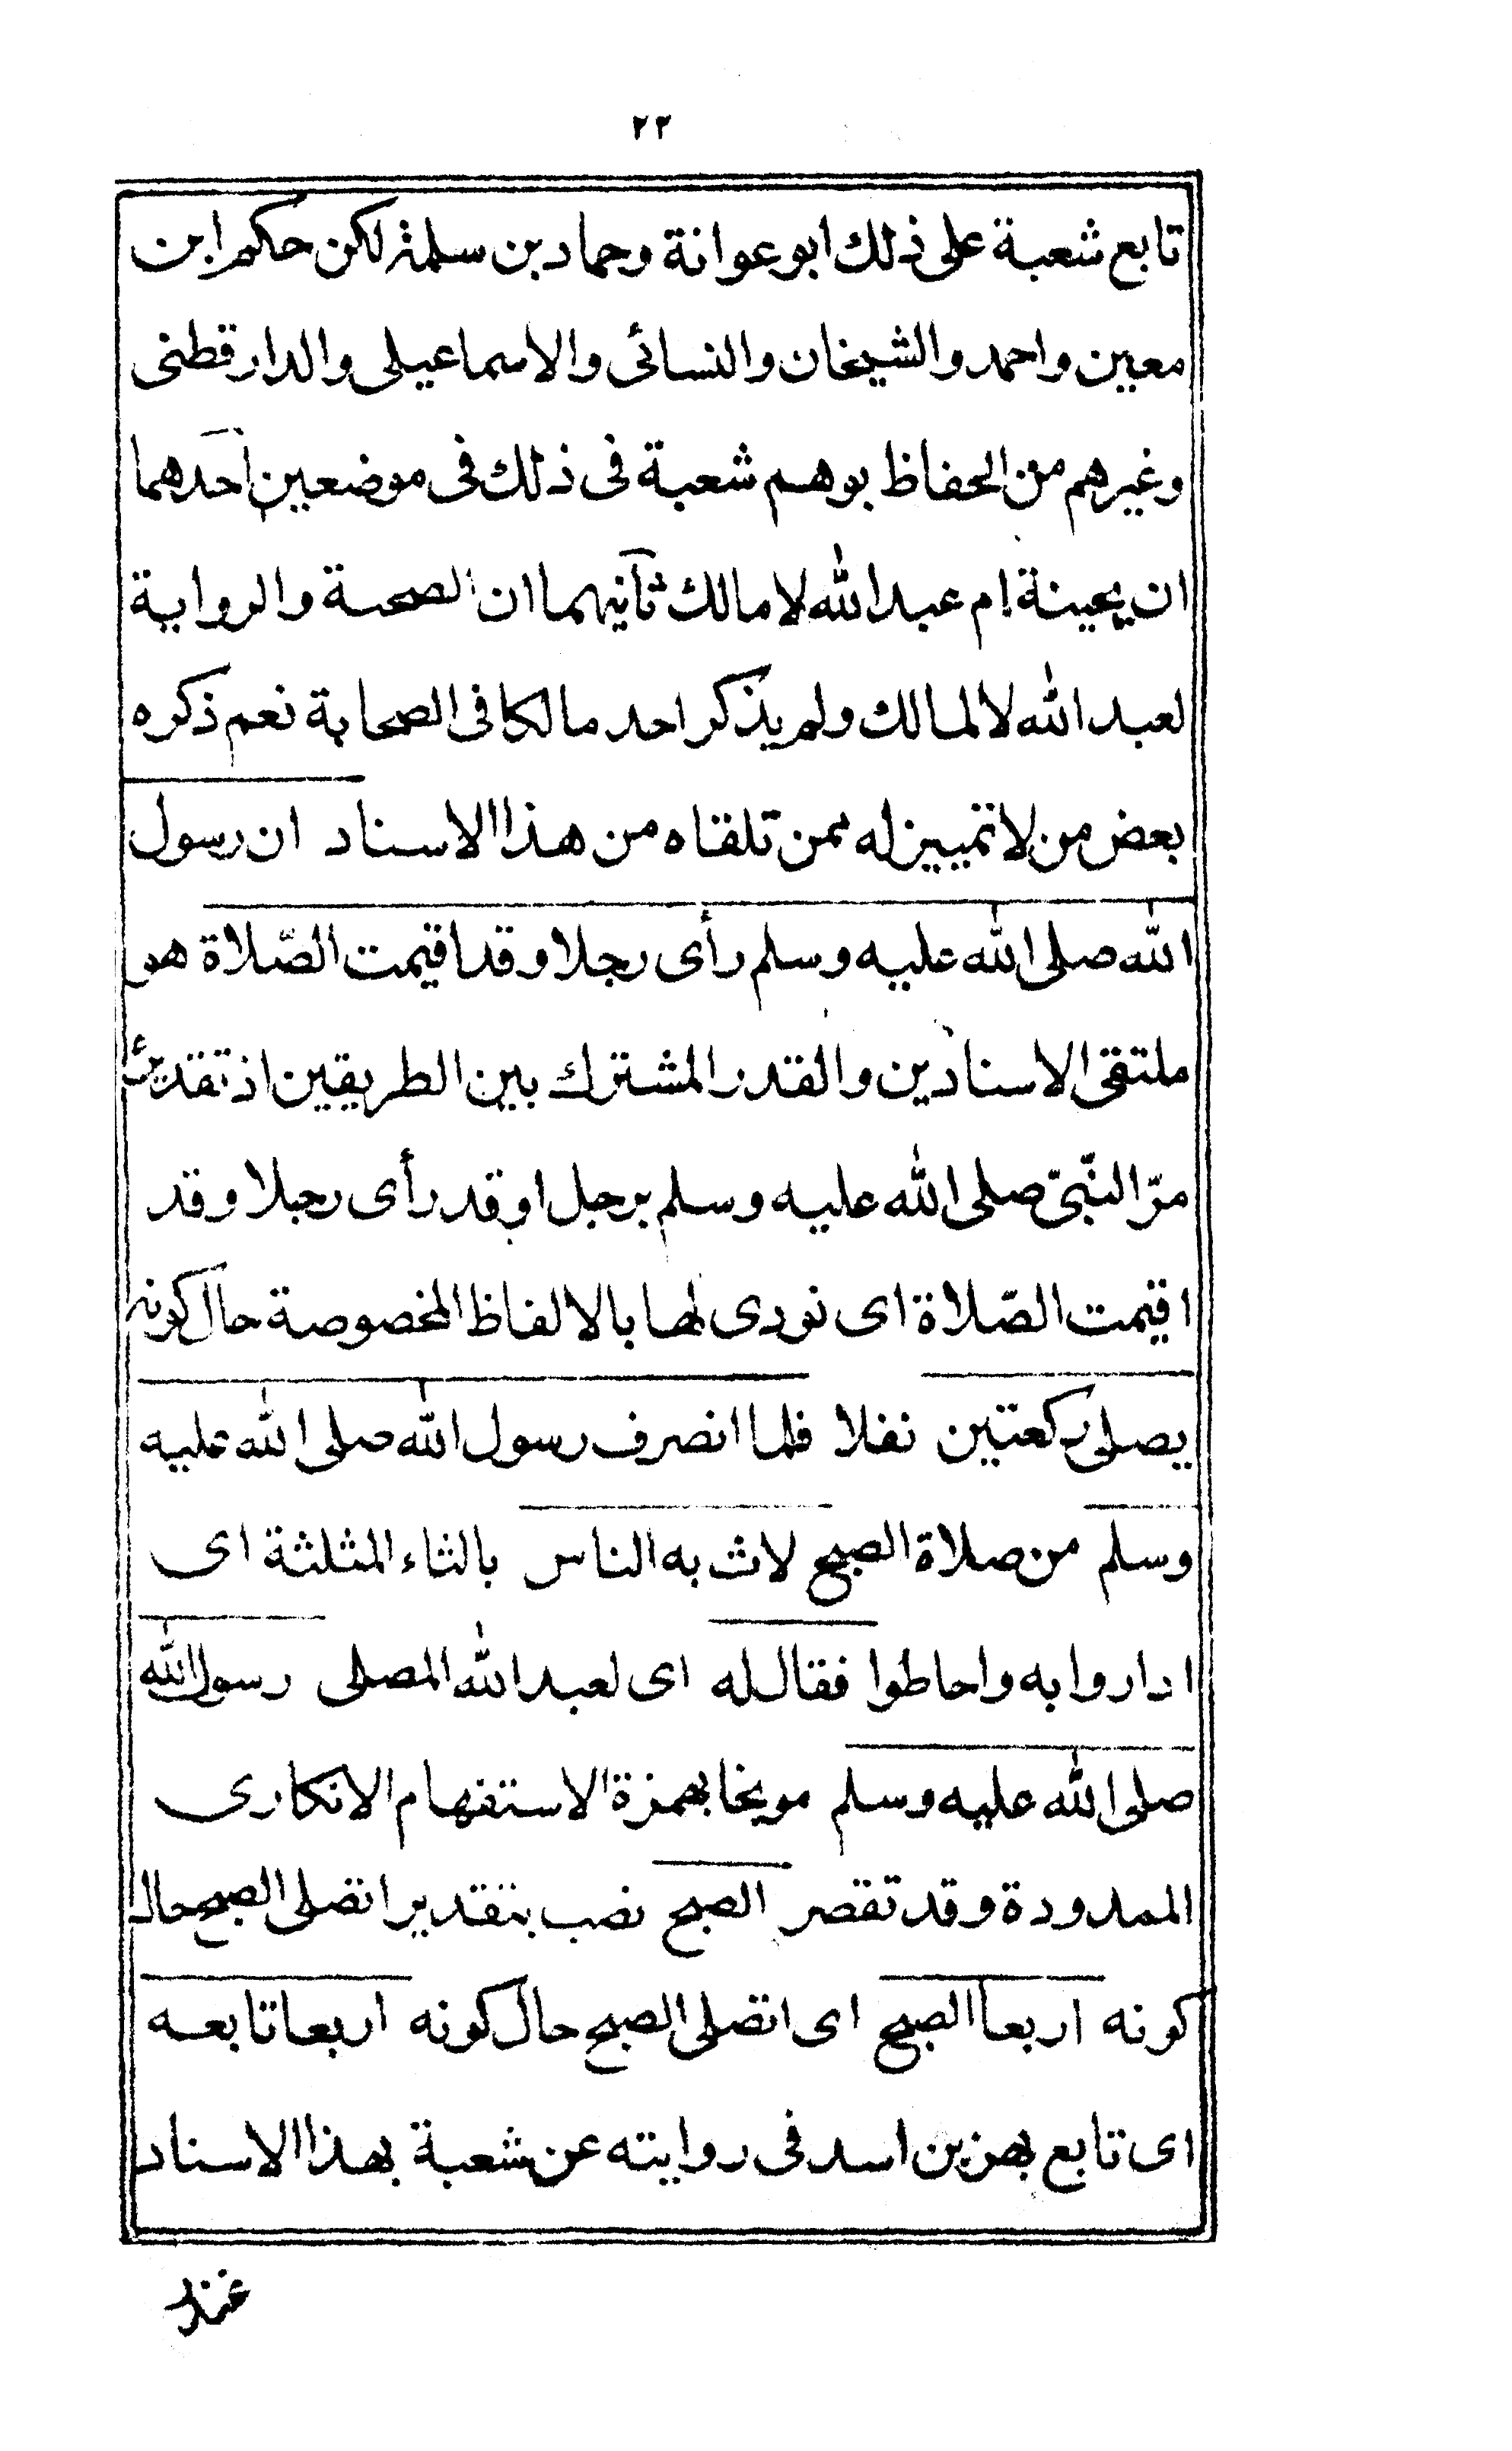 ٢٢
تابع شعبة على ذلك ابو عوانة وحماد بن سلمة لكن حكم ابن
معين واحمد والشيخان والنسائى والاسماعيلى والدارقطنى
وغيرهم من الحفاظ بوهم شعبة فى ذلك فى موضعين احدهما
ان بحينة ام عبد الله لا مالك ثانيهما ان الصحبة والرواية
لعبد الله لا لمالك ولم يذكر احد مالكا فى الصحابة نعم ذكره
بعض من لا تمييز له ممن تلقاه من هذا الاسناد ان رسول
الله صلى الله عليه وسلم رأى رجلا وقد اقيمت الصّلاة هو
ملتقى الاسنادين والقدر المشترك بين الطريقين اذ تقديره
مرّ النّبىّ صلى الله عليه وسلم برجل او قد رأى رجلا وقد
اقيمت الصّلاة اى نودى لها بالالفاظ المخصوصة حال كونه
يصلى ركعتين نفلا فلما انصرف رسول الله صلى الله عليه
وسلم من صلاة الصبح لاث به الناس بالثاء المثلثة اى
اداروا به واحاطوا فقال له اى لعبد الله المصلى رسول الله
صلى الله عليه وسلم موبخا بهمزة الاستفهام الانكارى
الممدودة وقد تقصر الصبح نصب بتقدير اتصلى الصبح حال
كونه اربعا الصبح اى اتصلى الصبح حال كونه اربعا تابعه
اى تابع بهز بن اسد فى روايته عن شعبة بهذا الاسناد
غندر